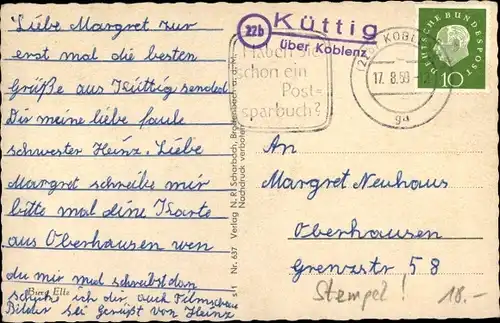 Liebe Margret zur
erst mal die besten
Grüße aus Küttig sended
Dir meine liebe faule
schwester Heinz. Liebe
Margret schreibe mir
bitte mal dine Karte
aus Oberhausen wen
du mir mal schreibst dan
schick ich dir auch Filmschau
Bilder sei gerüßt von Heinz
Burg Eltz
Verlag N. Rl Scharbach, Brodenbach a. d. M.
Nachdruck verboten
Nr. 637
22b
Küttig
über Koblenz
Haben Sie
schon ein
Post=
sparbuch?
KOBL
17. 8. 59
ga
DEUTSCHE BUNDESPOST
10
An
Margret Neuhaus
Oberhausen
Grenzstr 58
Stempel!
18.-